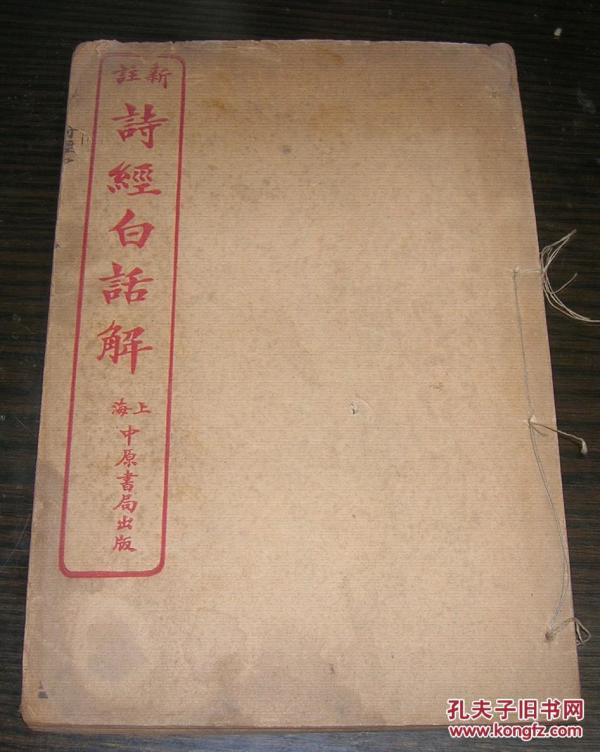 新註
詩經白話解
上海
中原書局出版
孔夫子旧书网
www.kongfz.com